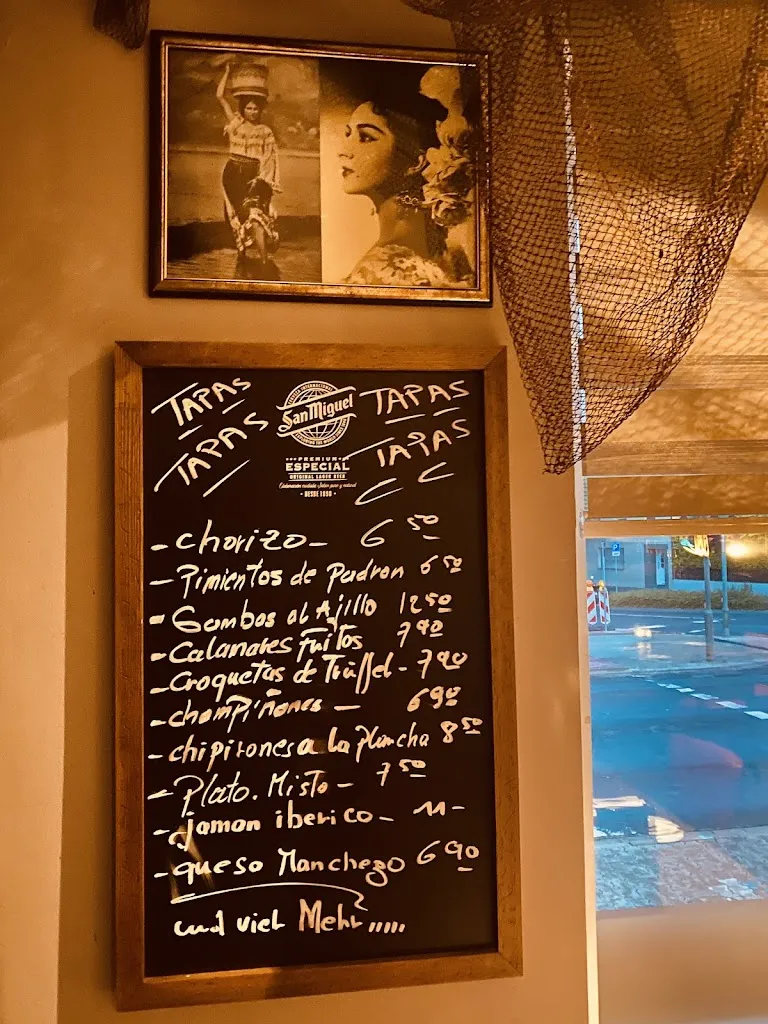 TAPAS
TAPAS
San Miguel
PREMIUM
ESPECIAL
ORIGINAL LAGER BEER
DESDE 1890
TAPAS
TAPAS
- chorizo - 6 50
- Pimientos de Padron 6 50
- Gambas al Ajillo 12 50
- Calamares fritos 7 90
- Croquetas de Trüffel - 7 90
- champiñones - 6 90
- chipirones a la plancha 8 50
- Plato. Misto - 7 50
- Jamon iberico - 11-
- queso Manchego 6 90
und viel Mehr.....